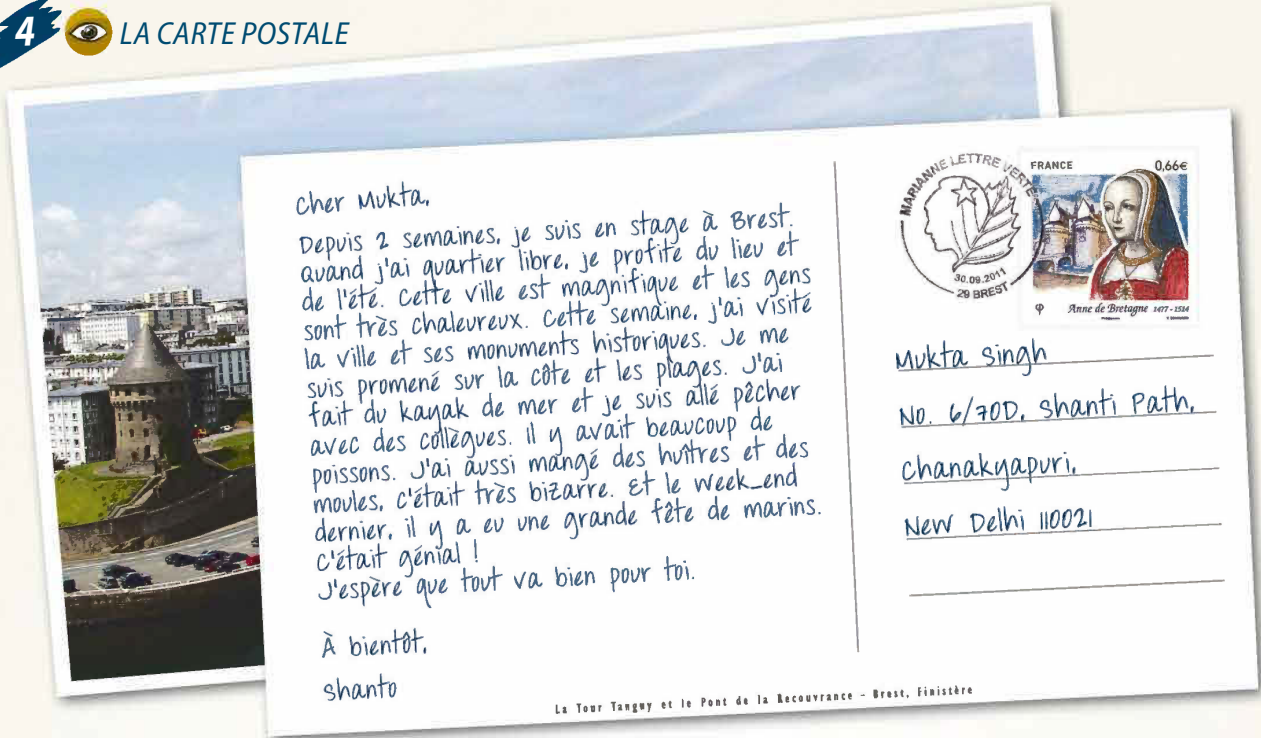 4 LA CARTE POSTALE
Cher Mukta,
Depuis 2 semaines, je suis en stage à Brest.
Quand j'ai quartier libre, je profite du lieu et
de l'été. Cette ville est magnifique et les gens
sont très chaleureux. Cette semaine, j'ai visité
la ville et ses monuments historiques. Je me
suis promené sur la côte et les plages. J'ai
fait du kayak de mer et je suis allé pêcher
avec des collègues. Il y avait beaucoup de
poissons. J'ai aussi mangé des huîtres et des
moules, c'était très bizarre. Et le week_end
dernier, il y a eu une grande fête de marins.
C'était génial !
J'espère que tout va bien pour toi.
À bientôt,
Shanto
MARIANNE LETTRE VERTE
30.09.2011
29 BREST
FRANCE 0,66€
Anne de Bretagne 1477-1514
Mukta Singh
No. 6/70D, Shanti Path,
Chanakyapuri,
New Delhi 110021
La Tour Tanguy et le Pont de la Recouvrance - Brest, Finistère